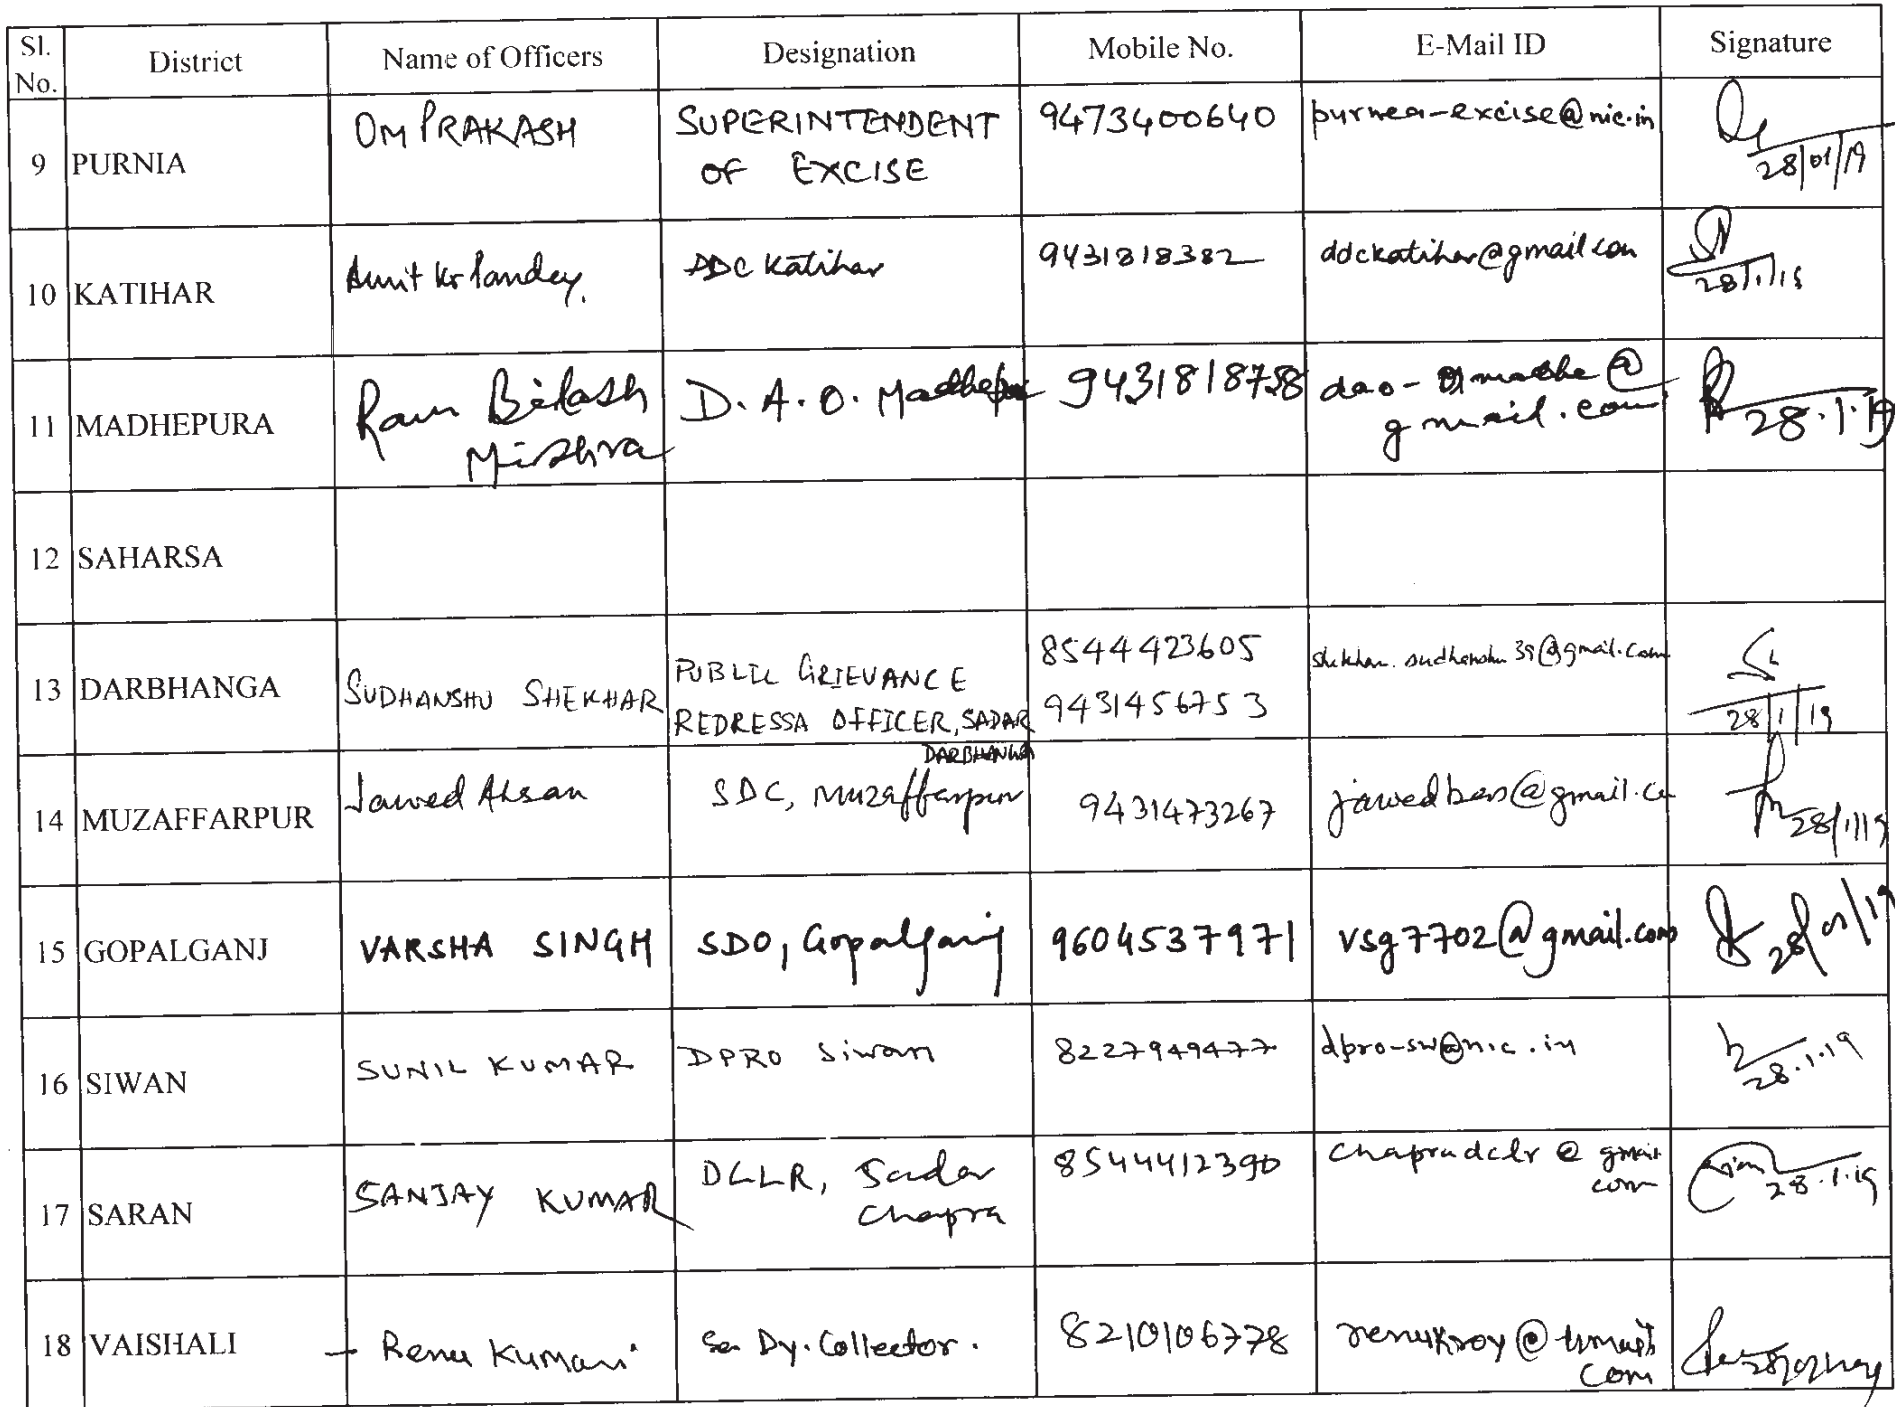 Sl. No. District Name of Officers Designation Mobile No. E-Mail ID Signature
9 PURNIA OM PRAKASH SUPERINTENDENT OF EXCISE 9473400640 purnea-excise@nic.in 28/01/19
10 KATIHAR Amit Kr Pandey. DDC Katihar 9431818382 ddckatihar@gmail.com 28/1/19
11 MADHEPURA Ram Bilash Mishra D.A.O. Madhepura 9431818758 dao- @ gmail.com 28.1.19
12 SAHARSA
13 DARBHANGA SUDHANSHU SHEKHAR PUBLIC GRIEVANCE REDRESSA OFFICER, SADAR DARBHANGA 8544423605 9431456753 shekhar.sudhanshu39@gmail.com 28/1/19
14 MUZAFFARPUR Jawed Ahsan SDC, Muzaffarpur 9431473267 28/1/19
15 GOPALGANJ VARSHA SINGH SDO, Gopalganj 9604537971 vsg7702@gmail.com 28/01/19
16 SIWAN SUNIL KUMAR DPRO Siwan 8227949477 dpro-sw@nic.in 28.1.19
17 SARAN SANJAY KUMAR DCLR, Sadar Chapra 8544412390 chapradclr@gmail com 28.1.19
18 VAISHALI - Renu Kumari Sr. Dy. Collector. 8210106778